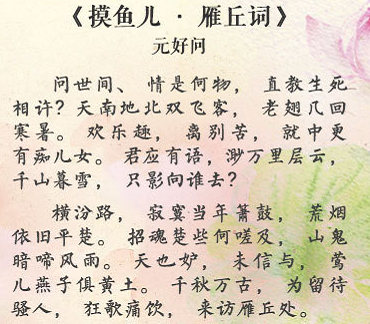 《摸鱼儿 · 雁丘词》
元好问
问世间、情是何物，直教生死
相许？天南地北双飞客，老翅几回
寒暑。欢乐趣，离别苦，就中更
有痴儿女。君应有语，渺万里层云，
千山暮雪，只影向谁去？
横汾路，寂寞当年箫鼓，荒烟
依旧平楚。招魂楚些何嗟及，山鬼
暗啼风雨。天也妒，未信与，莺
儿燕子俱黄土。千秋万古，为留待
骚人，狂歌痛饮，来访雁丘处。